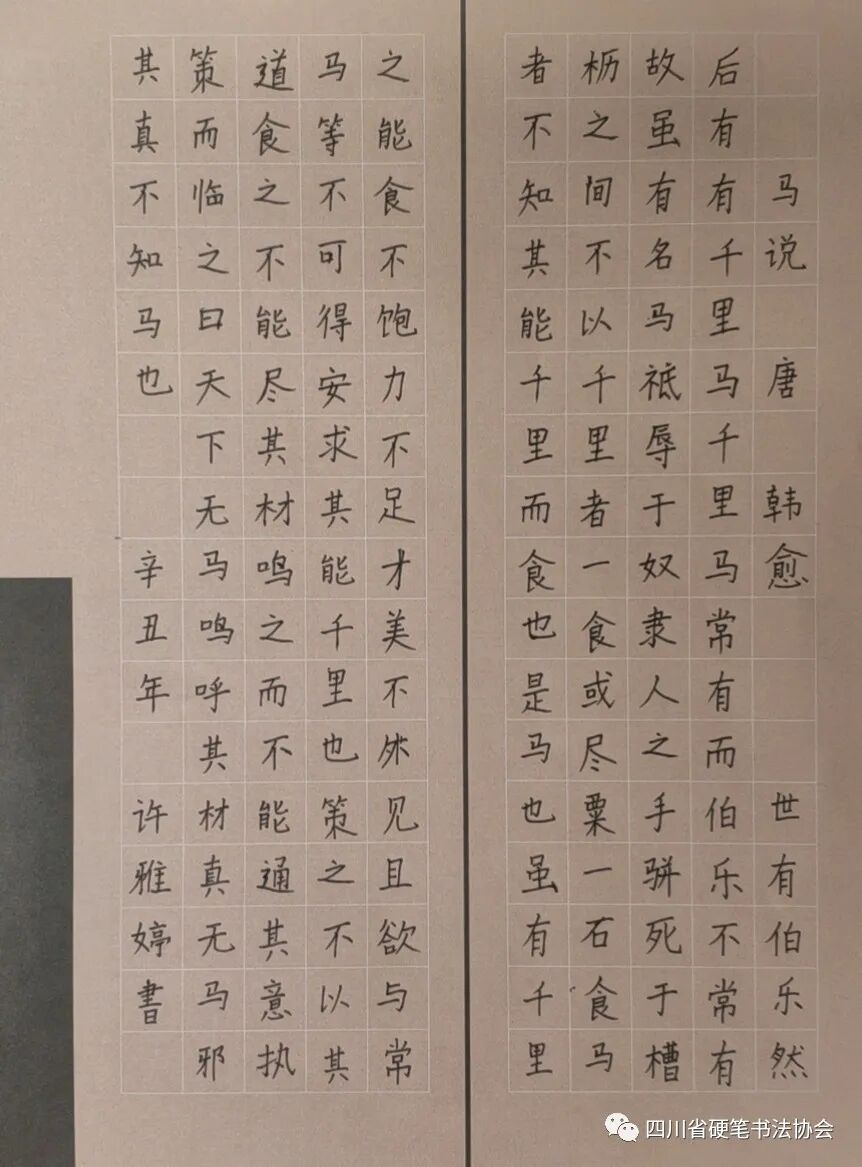 马说 唐 韩愈 世有伯乐然
后有有千里马千里马常有而伯乐不常有
故虽有名马祗辱于奴隶人之手骈死于槽
枥之间不以千里者一食或尽粟一石食马
者不知其能千里而食也是马也虽有千里
之能食不饱力不足才美不外见且欲与常
马等不可得安求其能千里也策之不以其
道食之不能尽其材鸣之而不能通其意执
策而临之曰天下无马鸣呼其材真无马邪
其真不知马也 辛丑年 许雅婷書
四川省硬笔书法协会